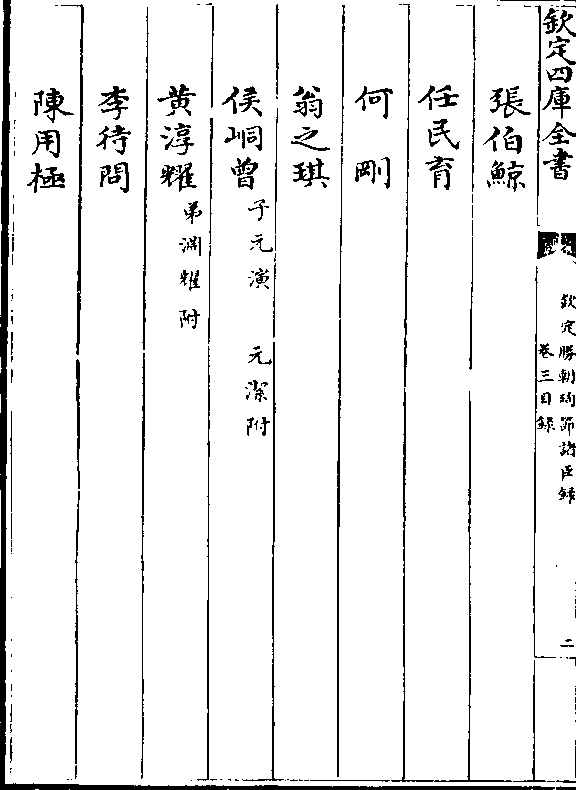 欽定四庫全書
欽定勝朝殉節諸臣録
卷三目録
二
張伯鯨
任民育
何剛
翁之琪
侯峒曾 子元演 元潔附
黄淳耀 弟淵耀附
李待問
陳用極